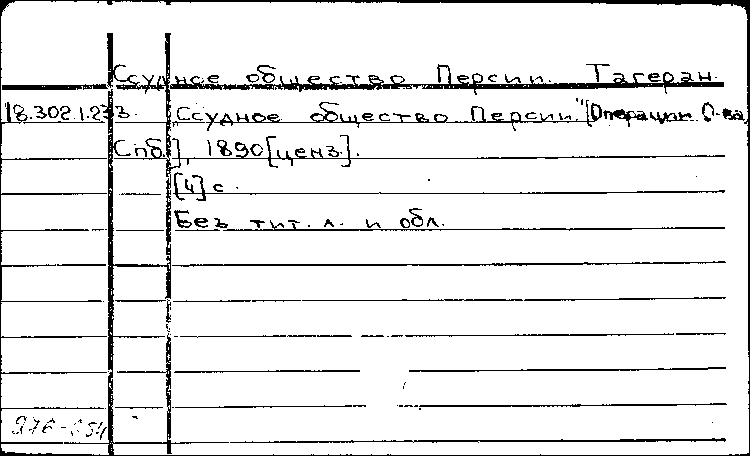 Ссудное общество Персии. Тагеран.
18.302.1.233. "Ссудное общество Персии." [Операции О-ва,
Спб.], 1890 [ценз].
[4] с.
Без тит. л. и обл.
276-654